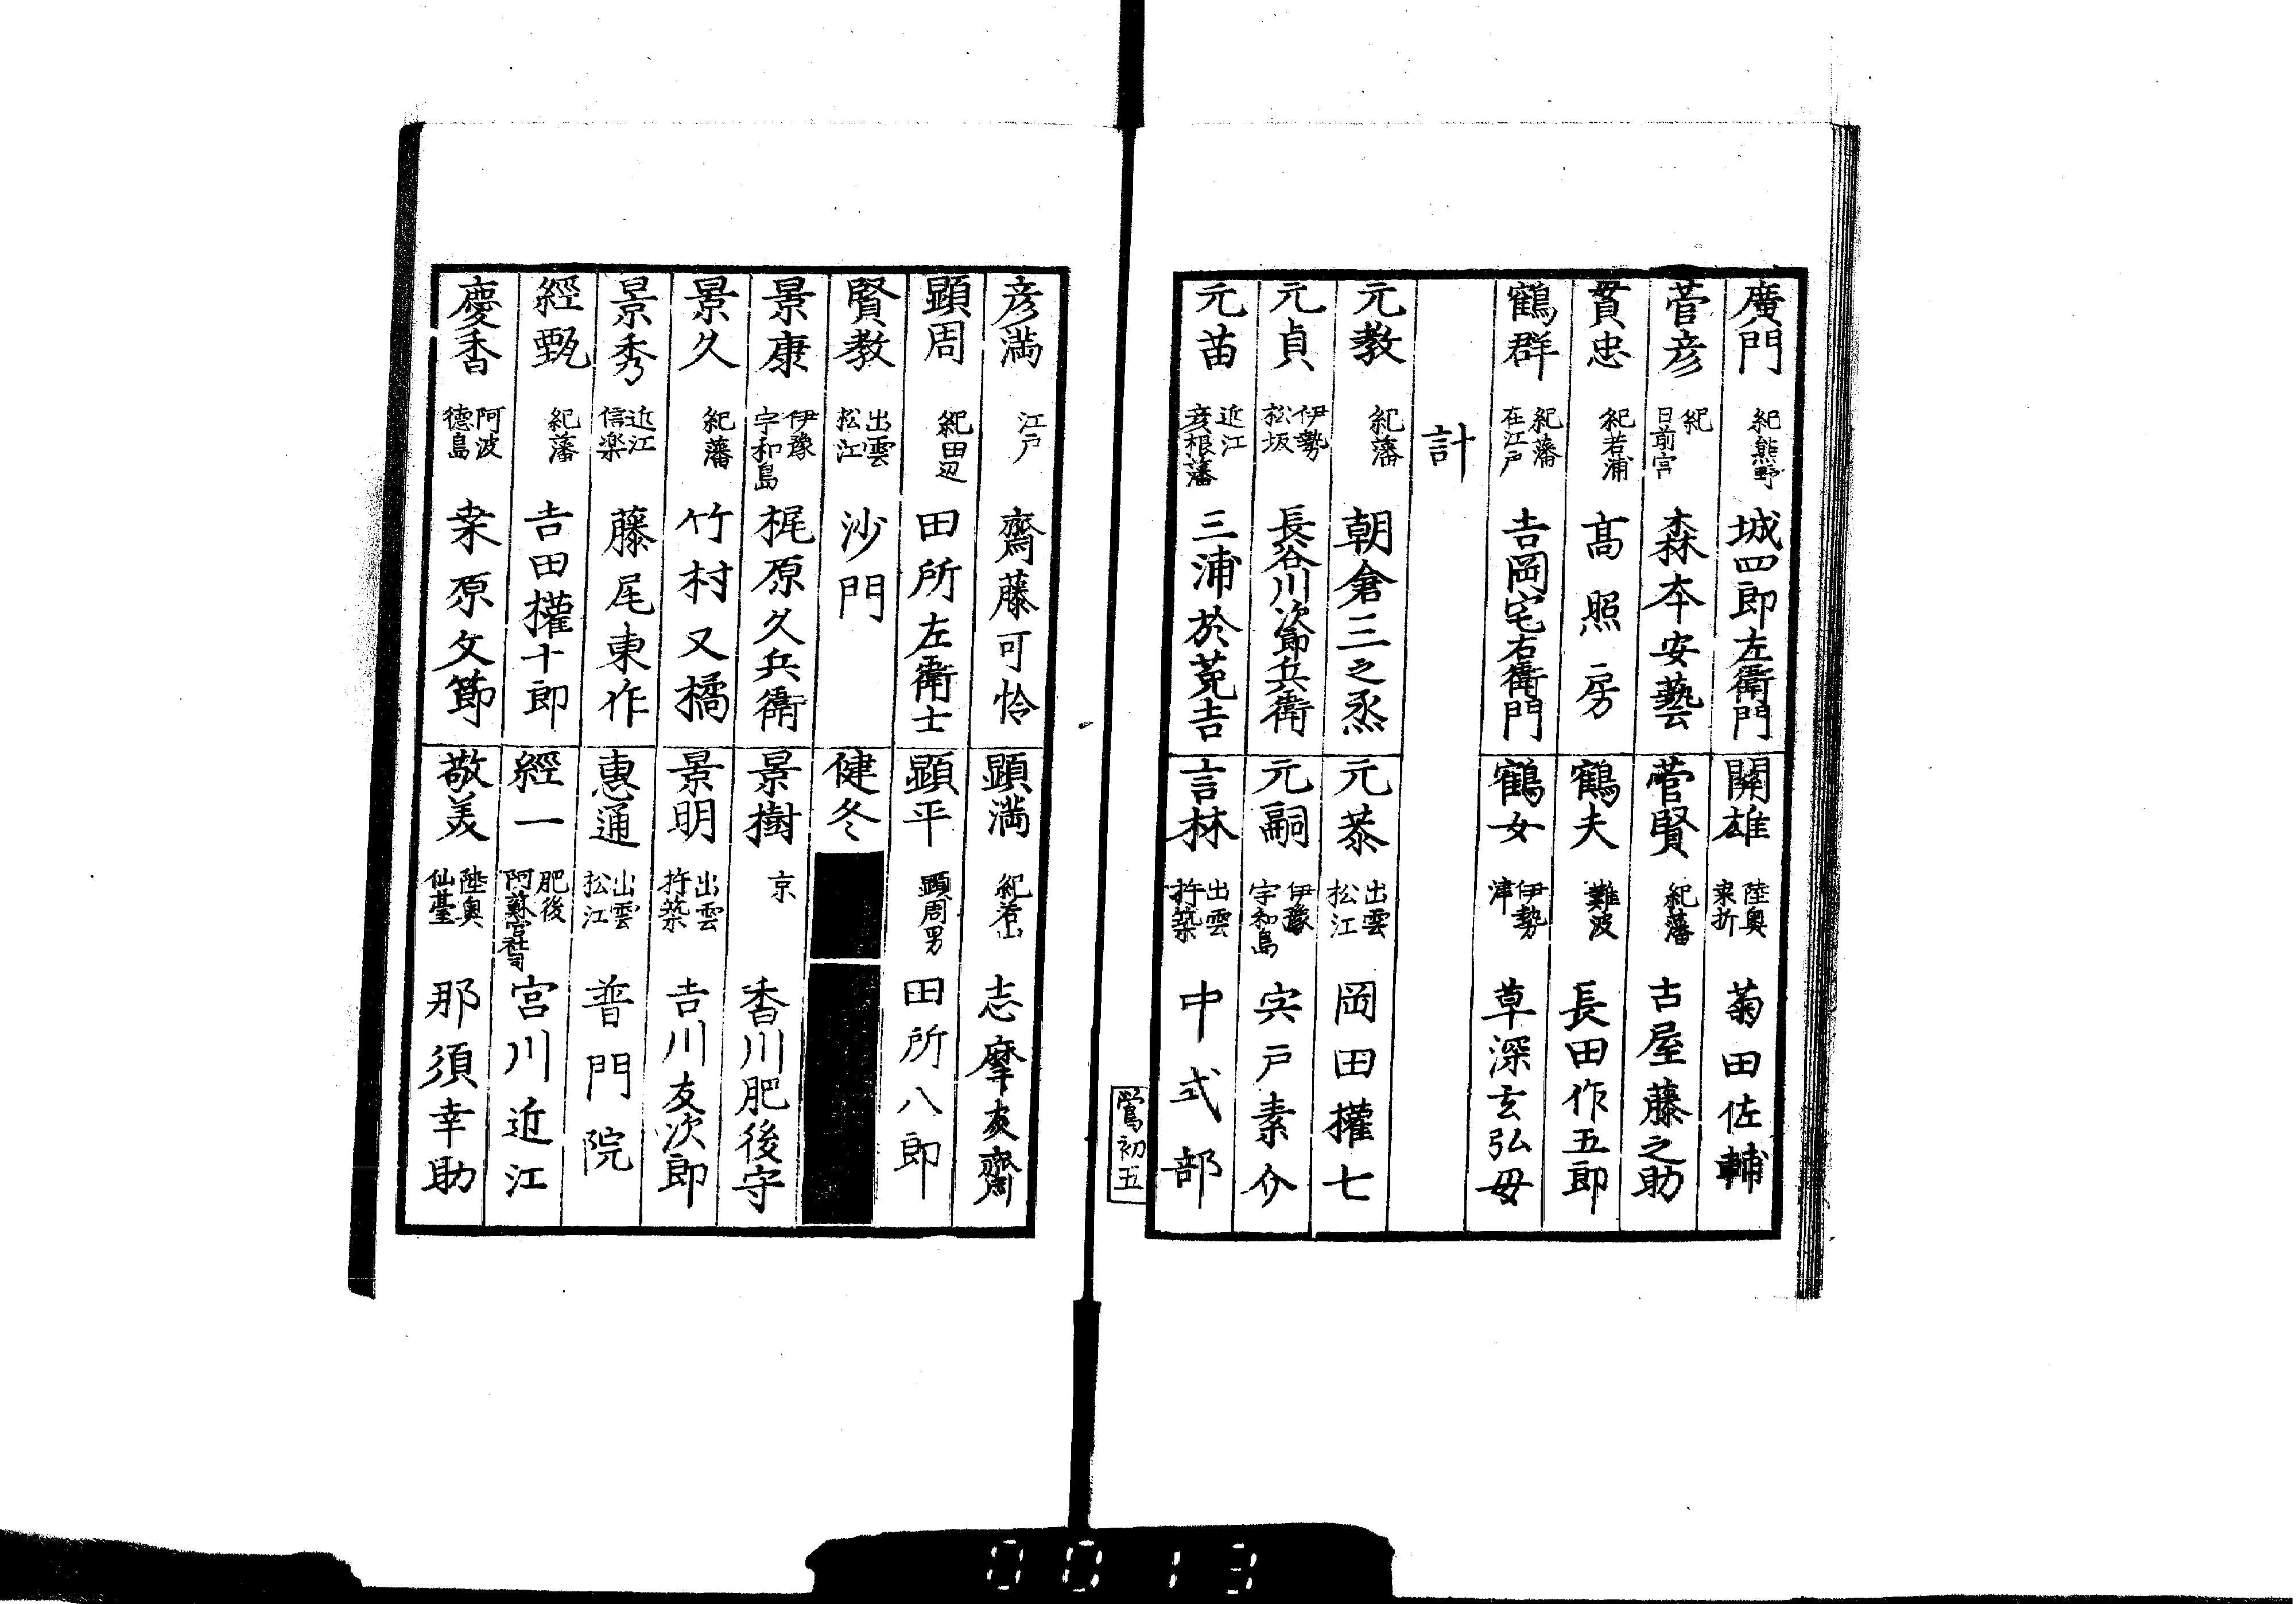 廣門 紀熊野 城四郎左衛門
菅彦 紀日前宮 森本安藝
貫忠 紀若浦 髙照房
鶴群 紀藩在江戸 吉岡宅右衛門
關雄 陸奥桒折 菊田佐輔
菅賢 紀藩 古屋藤之助
鶴夫 難波 長田作五郎
鶴女 伊勢津 草深玄弘母
計
元教 紀藩 朝倉三之烝
元貞 伊勢松坂 長谷川次郎兵衛
元苗 近江彦根藩 三浦於菟吉
元恭 出雲松江 岡田權七
元嗣 伊豫宇和島 宍戸素介
言林 出雲杵築 中式部
鶯初五
彦満 江戸 齋藤可怜
顕周 紀田辺 田所左衛士
賢教 出雲松江 沙門
景康 伊豫宇和島 梶原久兵衛
景久 紀藩 竹村又橘
景秀 近江信楽 藤尾東作
經甄 紀藩 吉田權十郎
慶香 阿波德島 桒原文節
顕満 紀若山 志摩友齋
顕平 顕周男 田所八郎
健冬
景樹 京 香川肥後守
景明 出雲杵築 吉川友次郎
惠通 出雲松江 普門院
經一 肥後阿蘇宮社司 宮川近江
敬美 陸奥仙臺 那須幸助
0013